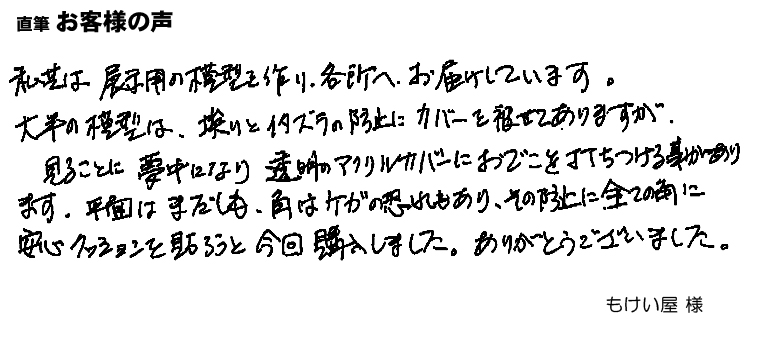 直筆 お客様の声
私共は 展示用の模型を作り、各所へ、お届けしています。
大半の模型は、埃りとイタズラの防止に カバーを被せてありますが、
見ることに 夢中になり 透明のアクリルカバーにおでこを打ちつける事があり
ます。平面は まだしも、角はケガの恐れもあり、その防止に全ての角に
安心クッションを貼ろうと 今回 購入しました。ありがとうございました。
もけい屋 様